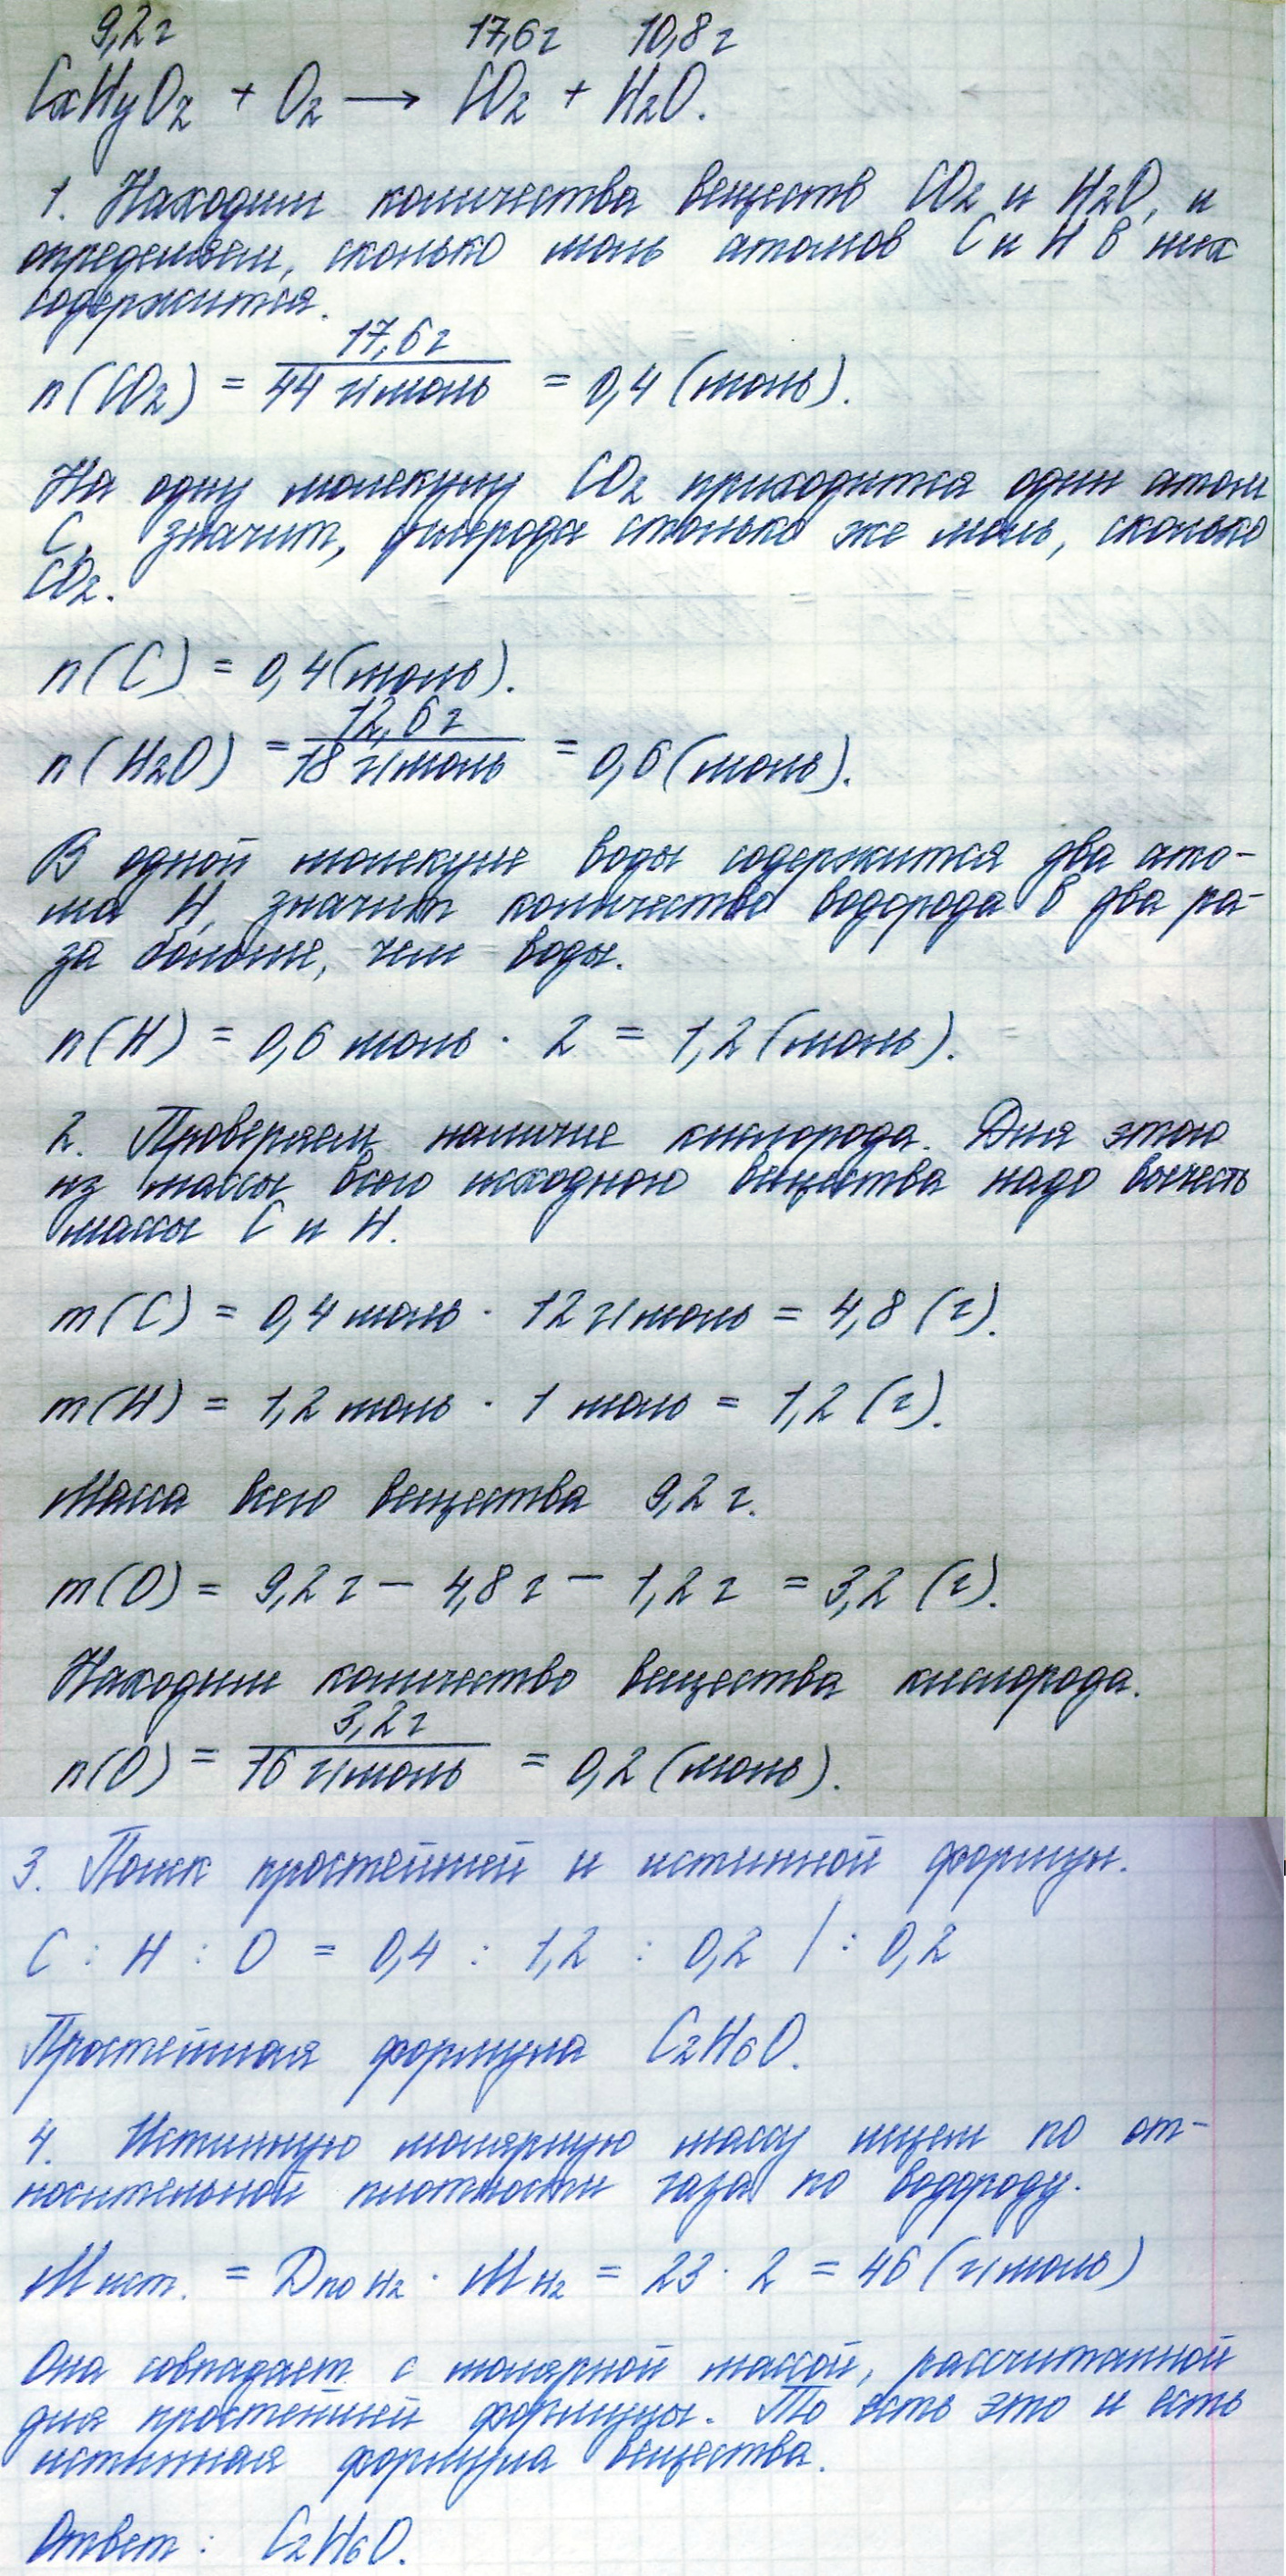 9,2г 17,6г 10,8г
CxHyOz + O2 → CO2 + H2O.
1. Находим количества веществ CO2 и H2O, и
определяем, сколько моль атомов C и H в них
содержится.
17,6г
n(CO2) = 44 г/моль = 0,4 (моль).
На одну молекулу CO2 приходится один атом
C, значит, углерода столько же моль, сколько
CO2.
n(C) = 0,4(моль).
12,6г
n(H2O) = 18 г/моль = 0,6(моль).
В одной молекуле воды содержится два ато-
ма H, значит количество водорода в два ра-
за больше, чем воды.
n(H) = 0,6 моль · 2 = 1,2(моль).
2. Проверяем наличие кислорода. Для этого
из массы всего исходного вещества надо вычесть
массы C и H.
m(C) = 0,4 моль · 12 г/моль = 4,8 (г).
m(H) = 1,2 моль · 1 моль = 1,2 (г).
Масса всего вещества 9,2 г.
m(O) = 9,2 г – 4,8 г – 1,2 г = 3,2 (г).
Находим количество вещества кислорода.
3,2г
n(O) = 16 г/моль = 0,2 (моль).
3. Поиск простейшей и истинной формулы.
C : H : O = 0,4 : 1,2 : 0,2 / : 0,2
Простейшая формула C2H6O.
4. Истинную молярную массу ищем по от-
носительной плотности газа по водороду.
Mист. = Dпо H2 · MH2 = 23 · 2 = 46 (г/моль)
Она совпадает с молярной массой, рассчитанной
для простейшей формулы. То есть это и есть
истинная формула вещества.
Ответ : C2H6O.